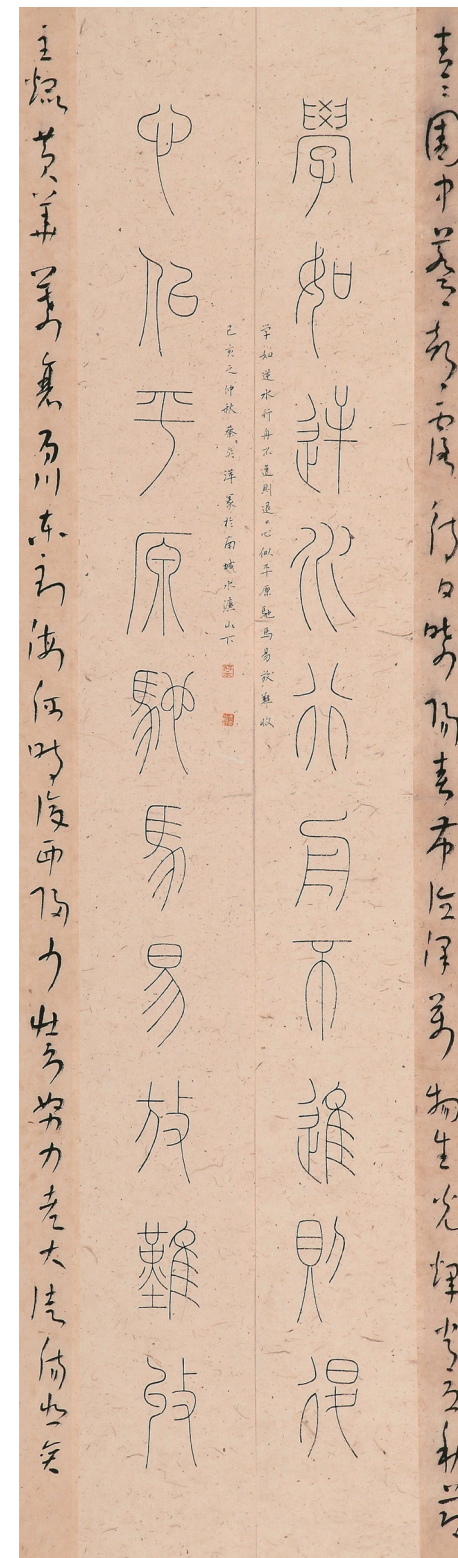 青〻園中葵朝露待日晞陽春布德澤萬物生光輝常恐秋節
學如逆水行舟不進則退
学如逆水行舟不進則退〻心似平原馳馬易放難收
己亥之仲秋蔡洋篆於南城水濂山下
心似平原馳馬易放難收
至焜黄華葉衰百川東到海何時復西歸少壯不努力老大徒傷悲